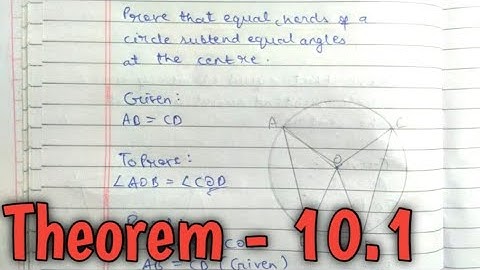 Prove that equal chords of a
circle subtend equal angles
at the centre.
Given:
AB = CD
To Prove:
∠AOB = ∠COD
A
C
O
Theorem - 10.1
AB = CD (Given)